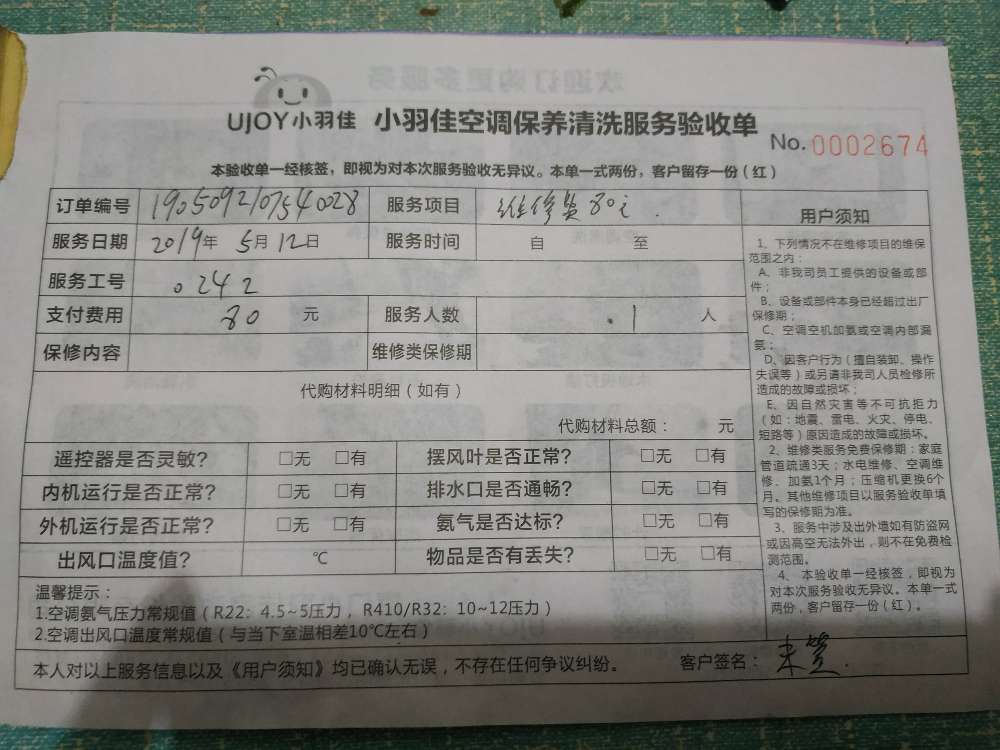 UJOY小羽佳 小羽佳空调保养清洗服务验收单
No. 0002674
本验收单一经核签，即视为对本次服务验收无异议。本单一式两份，客户留存一份（红）
订单编号 1905092107540028 服务项目 维修费80元
服务日期 2019年 5月 12日 服务时间 自 至
服务工号 0242
支付费用 80 元 服务人数 1 人
保修内容 维修类保修期
代购材料明细（如有）
代购材料总额： 元
遥控器是否灵敏? □无 □有 摆风叶是否正常? □无 □有
内机运行是否正常? □无 □有 排水口是否通畅? □无 □有
外机运行是否正常? □无 □有 氨气是否达标? □无 □有
出风口温度值? ℃ 物品是否有丢失? □无 □有
温馨提示：
1.空调氨气压力常规值（R22：4.5~5压力，R410/R32：10~12压力）
2.空调出风口温度常规值（与当下室温相差10℃左右）
本人对以上服务信息以及《用户须知》均已确认无误，不存在任何争议纠纷。 客户签名：
用户须知
1、下列情况不在维修项目的维保
范围之内：
A、非我司员工提供的设备或部
件；
B、设备或部件本身已经超过出厂
保修期；
C、空调空机加氨或空调内部漏
氨；
D、因客户行为（擅自装卸、操作
失误等）或另请非我司人员检修所
造成的故障或损坏；
E、因自然灾害等不可抗拒力
（如：地震、雷电、火灾、停电、
短路等）原因造成的故障或损坏。
2、维修类服务免费保修期：家庭
管道疏通3天；水电维修、空调维
修、加氨1个月；压缩机更换6个
月。其他维修项目以服务验收单填
写的保修期为准。
3、服务中涉及出外墙如有防盗网
或因高空无法外出，则不在免费检
测范围。
4、本验收单一经核签，即视为
对本次服务验收无异议。本单一式
两份，客户留存一份（红）。